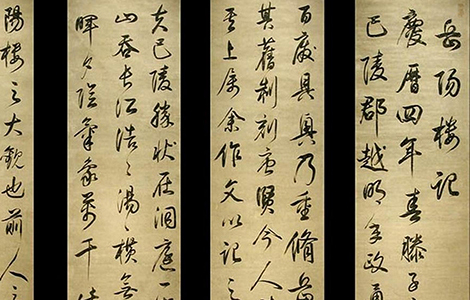 岳陽樓記
慶曆四年春滕子
巴陵郡越明年政
百廢具興乃重脩岳
其舊制刻唐賢今人
其上屬余作文以記之
夫巴陵勝狀在洞庭一
山吞長江浩浩湯湯橫無
暉夕陰氣象萬千
陽樓之大觀也前人之